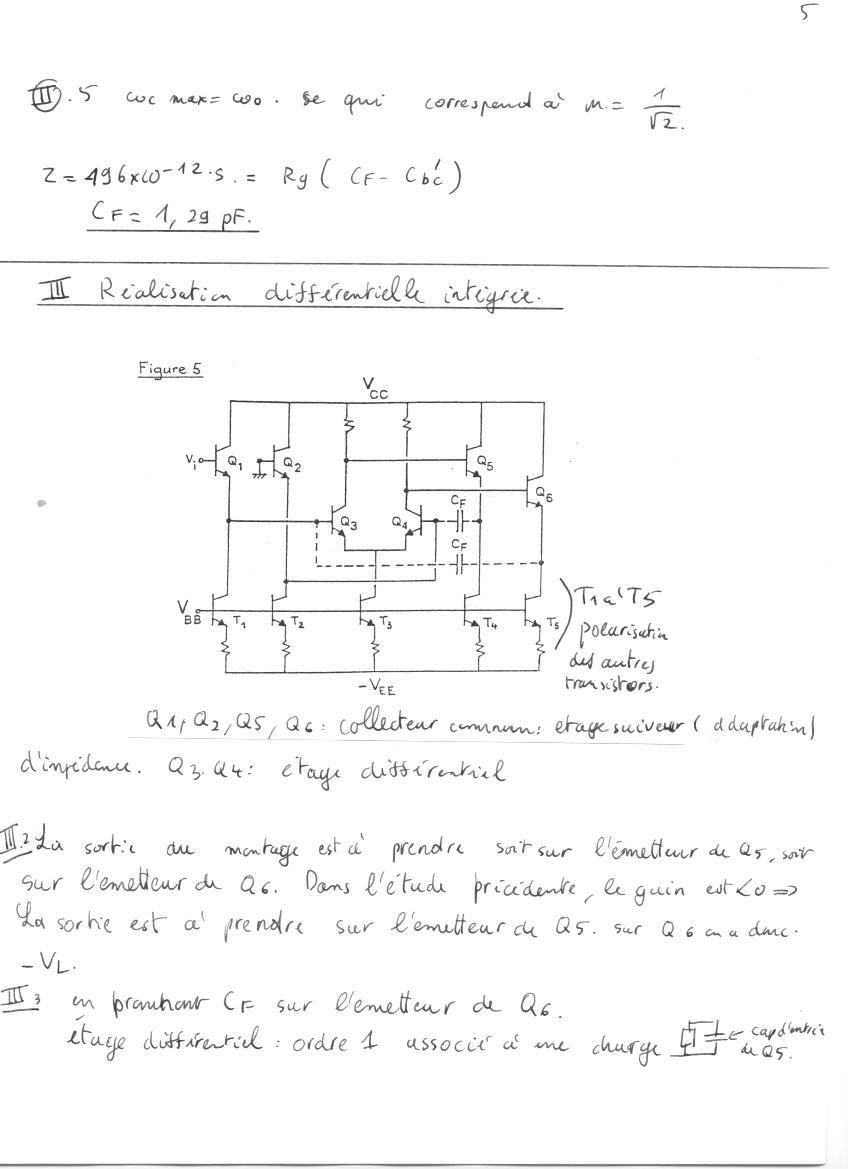 5
II.5 ωc max = ωo. se qui correspond à m = 1/√2.
Z = 496×10-12.s. = Rg ( CF - Cb'c )
CF = 1,29 pF.
III Réalisation différentielle intégrée.
Figure 5
VCC
Vi Q1 Q2 Q5
Q6
CF
Q3 Q4
CF
VBB T1 T2 T3 T4 T5
-VEE
T1 à T5
polarisation
des autres
transistors.
Q1, Q2, Q5, Q6 : collecteur commun: etage suiveur ( adaptation)
d'impédance. Q3. Q4: étage différentiel
III.2 La sortie du montage est à prendre soit sur l'émetteur de Q5, soit
sur l'emetteur de Q6. Dans l'étude précédente, le gain est <0 =>
La sortie est à prendre sur l'emetteur de Q5. sur Q6 on a donc.
- VL.
III 3 en branchant CF sur l'emetteur de Q6.
étage différentiel : ordre 1 associé à une charge ← cap d'entrée
de Q5.